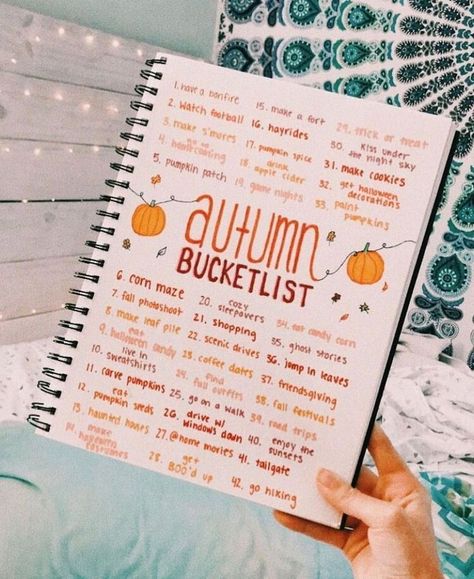 1. have a bonfire
2. watch football
3. make s'mores
4. go hometoading
5. pumpkin patch
15. make a fort
16. hayrides
17. pumpkin spice
18. drink apple cider
19. game nights
29. trick or treat
30. kiss under the night sky
31. make cookies
32. get halloween decorations
33. paint pumpkins
autumn
BUCKETLIST
6. corn maze
7. fall photoshoot
8. make leaf pile
9. eat halloween candy
10. live in sweatshirts
11. carve pumpkins
12. eat pumpkin seeds
13. haunted houses
14. make halloween costumes
20. cozy sleepovers
21. shopping
22. scenic drives
23. coffee dates
24. find fall outfits
25. go on a walk
26. drive w/ windows down
27. @ home movies
28. get BOO'd up
34. eat candy corn
35. ghost stories
36. jump in leaves
37. friendsgiving
38. fall festivals
39. road trips
40. enjoy the sunsets
41. tailgate
42. go hiking